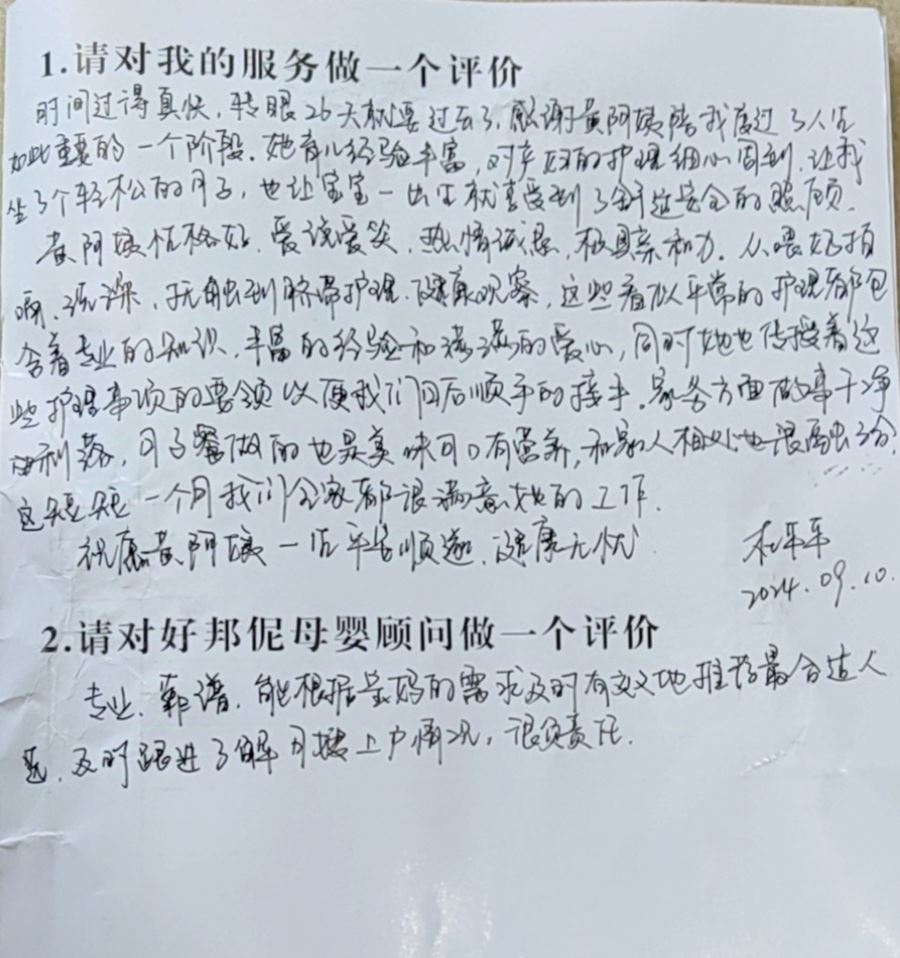 1.请对我的服务做一个评价
时间过得真快，转眼26天就要过去了，感谢黄阿姨陪我度过了人生
如此重要的一个阶段。她育儿经验丰富，对产妇的护理细心周到，让我
坐了个轻松的月子，也让宝宝一出生就享受到了舒适安全的照顾。
黄阿姨性格好、爱说爱笑、热情诚恳，极具亲和力。从喂奶拍
嗝、洗澡、抚触到脐带护理、健康观察，这些看似平常的护理都包
含着专业的知识、丰富的经验和满满的爱心，同时她也传授着这
些护理事项的要领以便我们日后顺手的接手。家务方面做事干净
利落，月子餐做的也是美味可口有营养，和家人相处也很融洽，
这短短一个月我们全家都很满意她的工作。
祝愿黄阿姨一生平安顺遂、健康无忧。
2024.09.10.
2.请对好邦伲母婴顾问做一个评价
专业、靠谱，能根据宝妈的需求及时有效地推荐最合适人
选，及时跟进了解月嫂上户情况，很负责任。